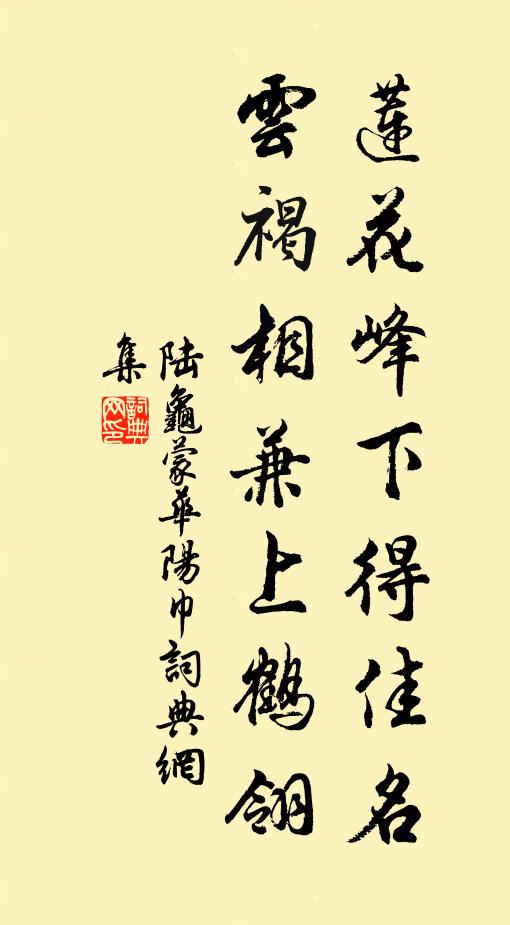 蓮花峰下得佳名
雲褐相兼上鶴翎
陆龜蒙華陽巾詞典網
集
詞典
网印